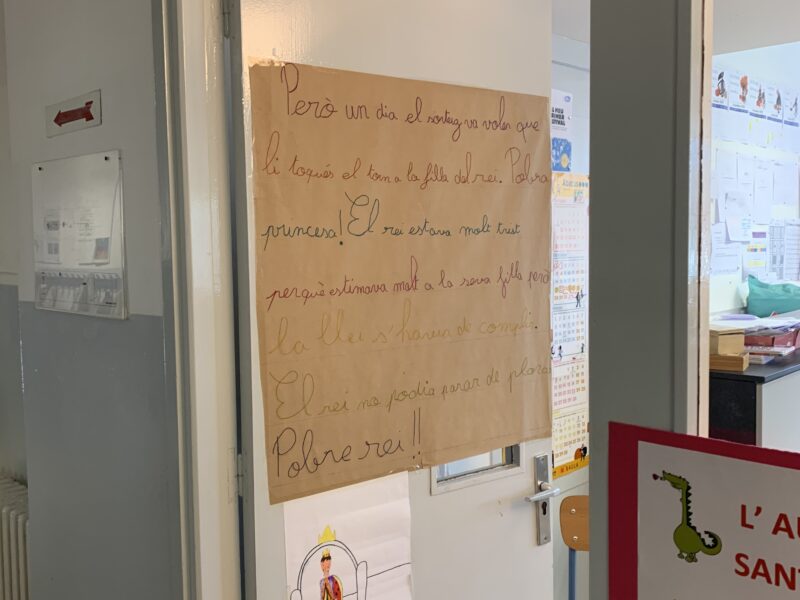 Però un dia el sorteig va voler que
li toqués el torn a la filla del rei. Pobra
princesa! El rei estava molt trist
perquè estimava molt a la seva filla però
la llei s'havia de complir.
El rei no podia parar de plorar
Pobre rei!!
L' AU
SANT